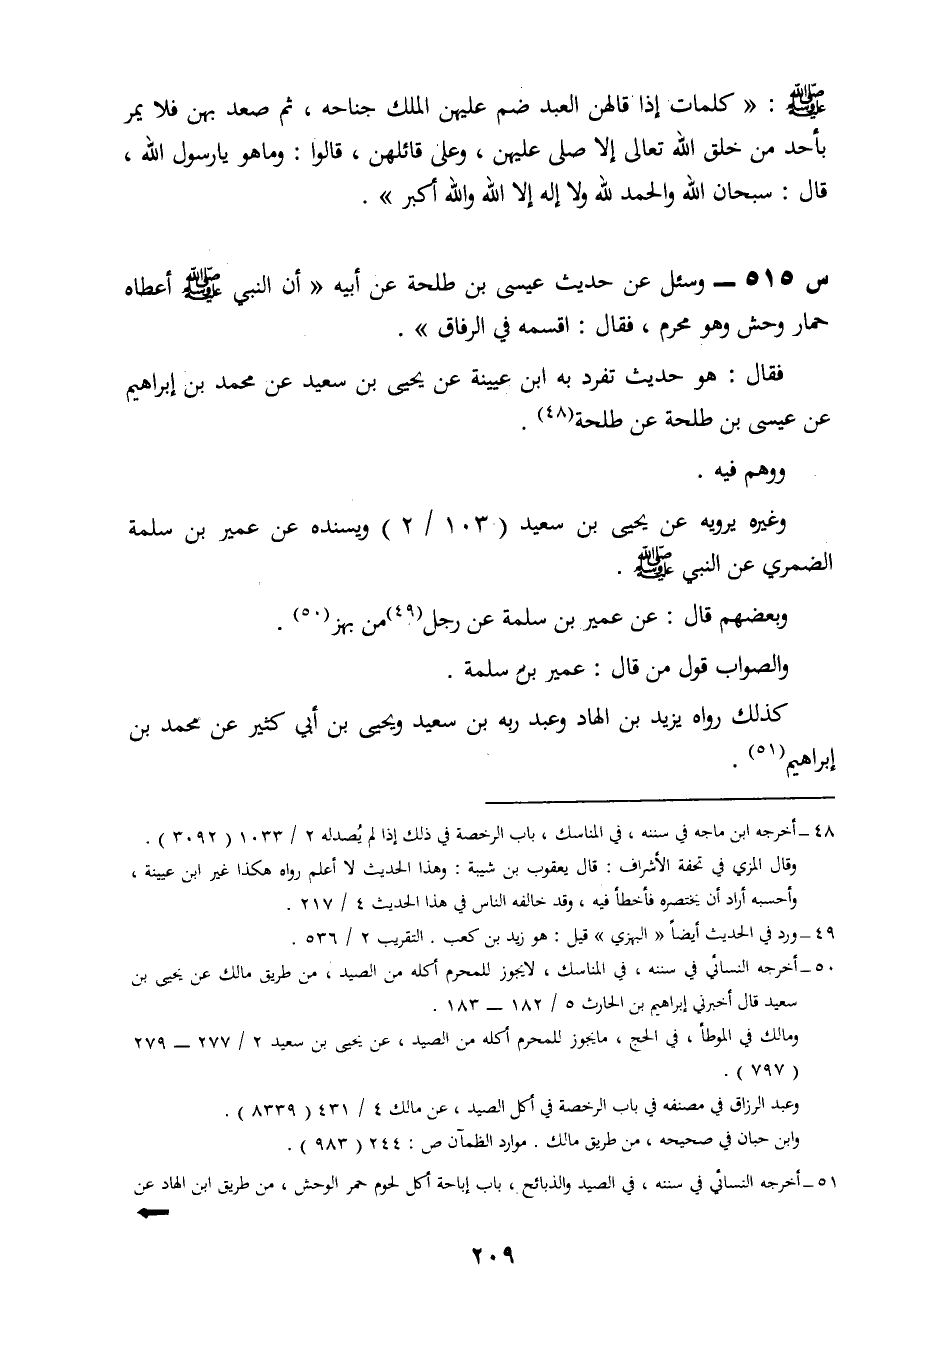 ﷺ : « كلمات إذا قالهن العبد ضم عليهن الملك جناحه ، ثم صعد بهن فلا يمر
بأحد من خلق الله تعالى إلا صلى عليهن ، وعلى قائلهن ، قالوا : وماهو يارسول الله ،
قال : سبحان الله والحمد لله ولا إله إلا الله والله أكبر » .
س ٥١٥ ــ وسئل عن حديث عيسى بن طلحة عن أبيه « أن النبي ﷺ أعطاه
حمار وحش وهو محرم ، فقال : اقسمه في الرفاق » .
فقال : هو حديث تفرد به ابن عيينة عن يحيى بن سعيد عن محمد بن إبراهيم
عن عيسى بن طلحة عن طلحة(٤٨) .
ووهم فيه .
وغيره يرويه عن يحيى بن سعيد ( ١٠٣ / ٢ ) ويسنده عن عمير بن سلمة
الضمري عن النبي ﷺ .
وبعضهم قال : عن عمير بن سلمة عن رجل(٤٩) من بهز(٥٠) .
والصواب قول من قال : عمير بن سلمة .
كذلك رواه يزيد بن الهاد وعبد ربه بن سعيد ويحيى بن أبي كثير عن محمد بن
إبراهيم(٥١) .
٤٨ ــ أخرجه ابن ماجه في سننه ، في المناسك ، باب الرخصة في ذلك إذا لم يُصدله ٢ / ١٠٣٣ ( ٣٠٩٢ ) .
وقال المزي في تحفة الأشراف : قال يعقوب بن شيبة : وهذا الحديث لا أعلم رواه هكذا غير ابن عيينة ،
وأحسبه أراد أن يختصره فأخطأ فيه ، وقد خالفه الناس في هذا الحديث ٤ / ٢١٧ .
٤٩ ــ ورد في الحديث أيضاً « البهزي » قيل : هو زيد بن كعب . التقريب ٢ / ٥٣٦ .
٥٠ ــ أخرجه النسائي في سننه ، في المناسك ، لايجوز للمحرم أكله من الصيد ، من طريق مالك عن يحيى بن
سعيد قال أخبرني إبراهيم بن الحارث ٥ / ١٨٢ ــ ١٨٣ .
ومالك في الموطأ ، في الحج ، مايجوز للمحرم أكله من الصيد ، عن يحيى بن سعيد ٢ / ٢٧٧ ــ ٢٧٩
( ٧٩٧ ) .
وعبد الرزاق في مصنفه في باب الرخصة في أكل الصيد ، عن مالك ٤ / ٤٣١ ( ٨٣٣٩ ) .
وابن حبان في صحيحه ، من طريق مالك . موارد الظمآن ص : ٢٤٤ ( ٩٨٣ ) .
٥١ ــ أخرجه النسائي في سننه ، في الصيد والذبائح ، باب إباحة أكل لحوم حمر الوحش ، من طريق ابن الهاد عن
٢٠٩